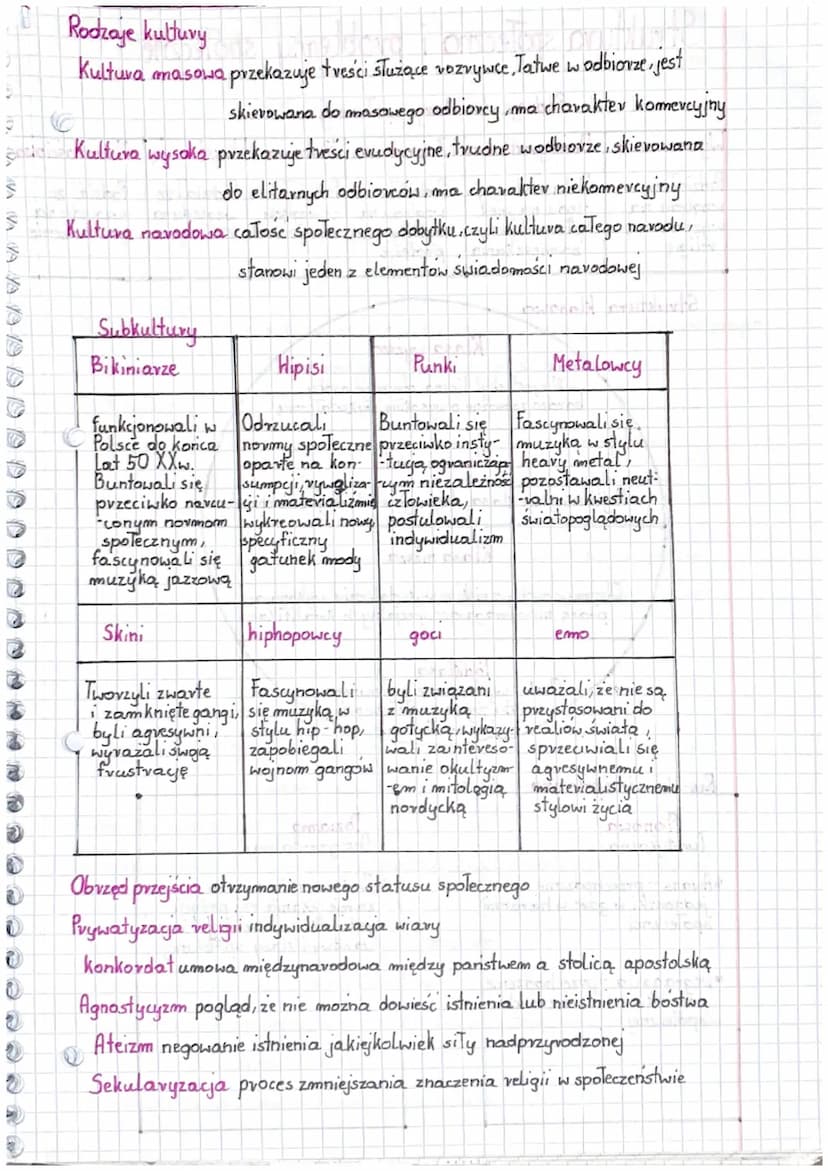 Rodzaje kultury
Kultura masowa przekazuje treści służące rozrywce, łatwe w odbiorze, jest
skierowana do masowego odbiorcy, ma charakter komercyjny
Kultura wysoka przekazuje treści erudycyjne, trudne w odbiorze, skierowana
do elitarnych odbiorców, ma charakter niekomercyjny
Kultura narodowa całość społecznego dobytku, czyli kultura całego narodu,
stanowi jeden z elementów świadomości narodowej
Subkultury
Bikiniarze
Hipisi
Punki
Metalowcy
funkcjonowali w
Polsce do końca
Lat 50 XXw.
Buntowali się
przeciwko narzu-
-conym normom
społecznym,
fascynowali się
muzyką jazzową
Odrzucali
normy społeczne
oparte na kon-
sumpcji, rywaliza-
-cji i materializmie
wykreowali nowy
specyficzny
gatunek mody
Buntowali się
przeciwko insty-
-tucją ograniczają-
-cym niezależność
człowieka,
postulowali
indywidualizm
Fascynowali się
muzyką w stylu
heavy metal,
pozostawali neut-
-ralni w kwestiach
światopoglądowych
Skini
hiphopowcy
goci
emo
Tworzyli zwarte
i zamknięte gangi,
byli agresywni,
wyrażali swoją
frustrację
Fascynowali
się muzyką w
stylu hip-hop,
zapobiegali
wojnom gangów
byli związani
z muzyką
gotycką, wykazy-
wali zaintereso-
wanie okultyzm-
-em i mitologią
nordycką
uważali, że nie są
przystosowani do
realiów świata,
sprzeciwiali się
agresywnemu i
materialistycznemu
stylowi życia
Obrzęd przejścia otrzymanie nowego statusu społecznego
Prywatyzacja religii indywidualizacja wiary
Konkordat umowa międzynarodowa między państwem a stolicą apostolską
Agnostycyzm pogląd, że nie można dowieść istnienia lub nieistnienia bóstwa
Ateizm negowanie istnienia jakiejkolwiek siły nadprzyrodzonej
Sekularyzacja proces zmniejszania znaczenia religii w społeczeństwie